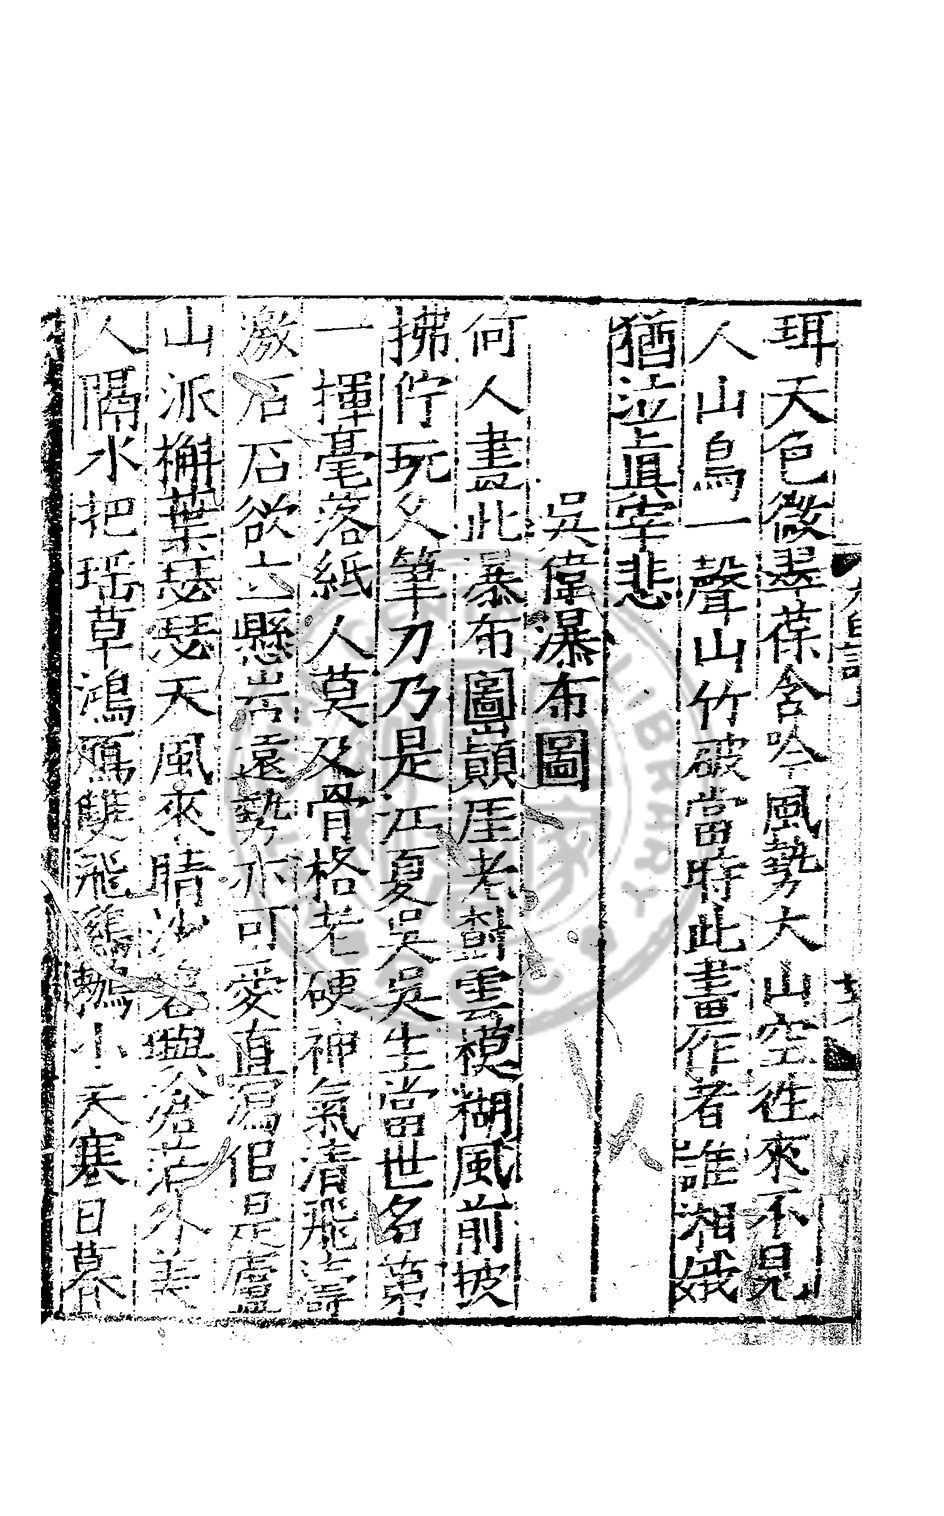 珥天色微翠葆含吟風勢大山空往來不見
人山鳥一聲山竹破當時此畫作者誰湘娥
猶泣真宰悲
吳偉瀑布圖
何人畫此瀑布圖巔厓老樹雲模糊風前披
拂佇玩久筆力乃是江夏吳吳生當世名第
一揮毫落紙人莫及骨格老硬神氣清飛濤
激石石欲立懸岩遠勢亦可愛直寫佀是廬
山派槲葉瑟瑟天風來晴沙 與滄茫外美
人隔水把瑶草鴻鴈雙飛 小天寒日暮